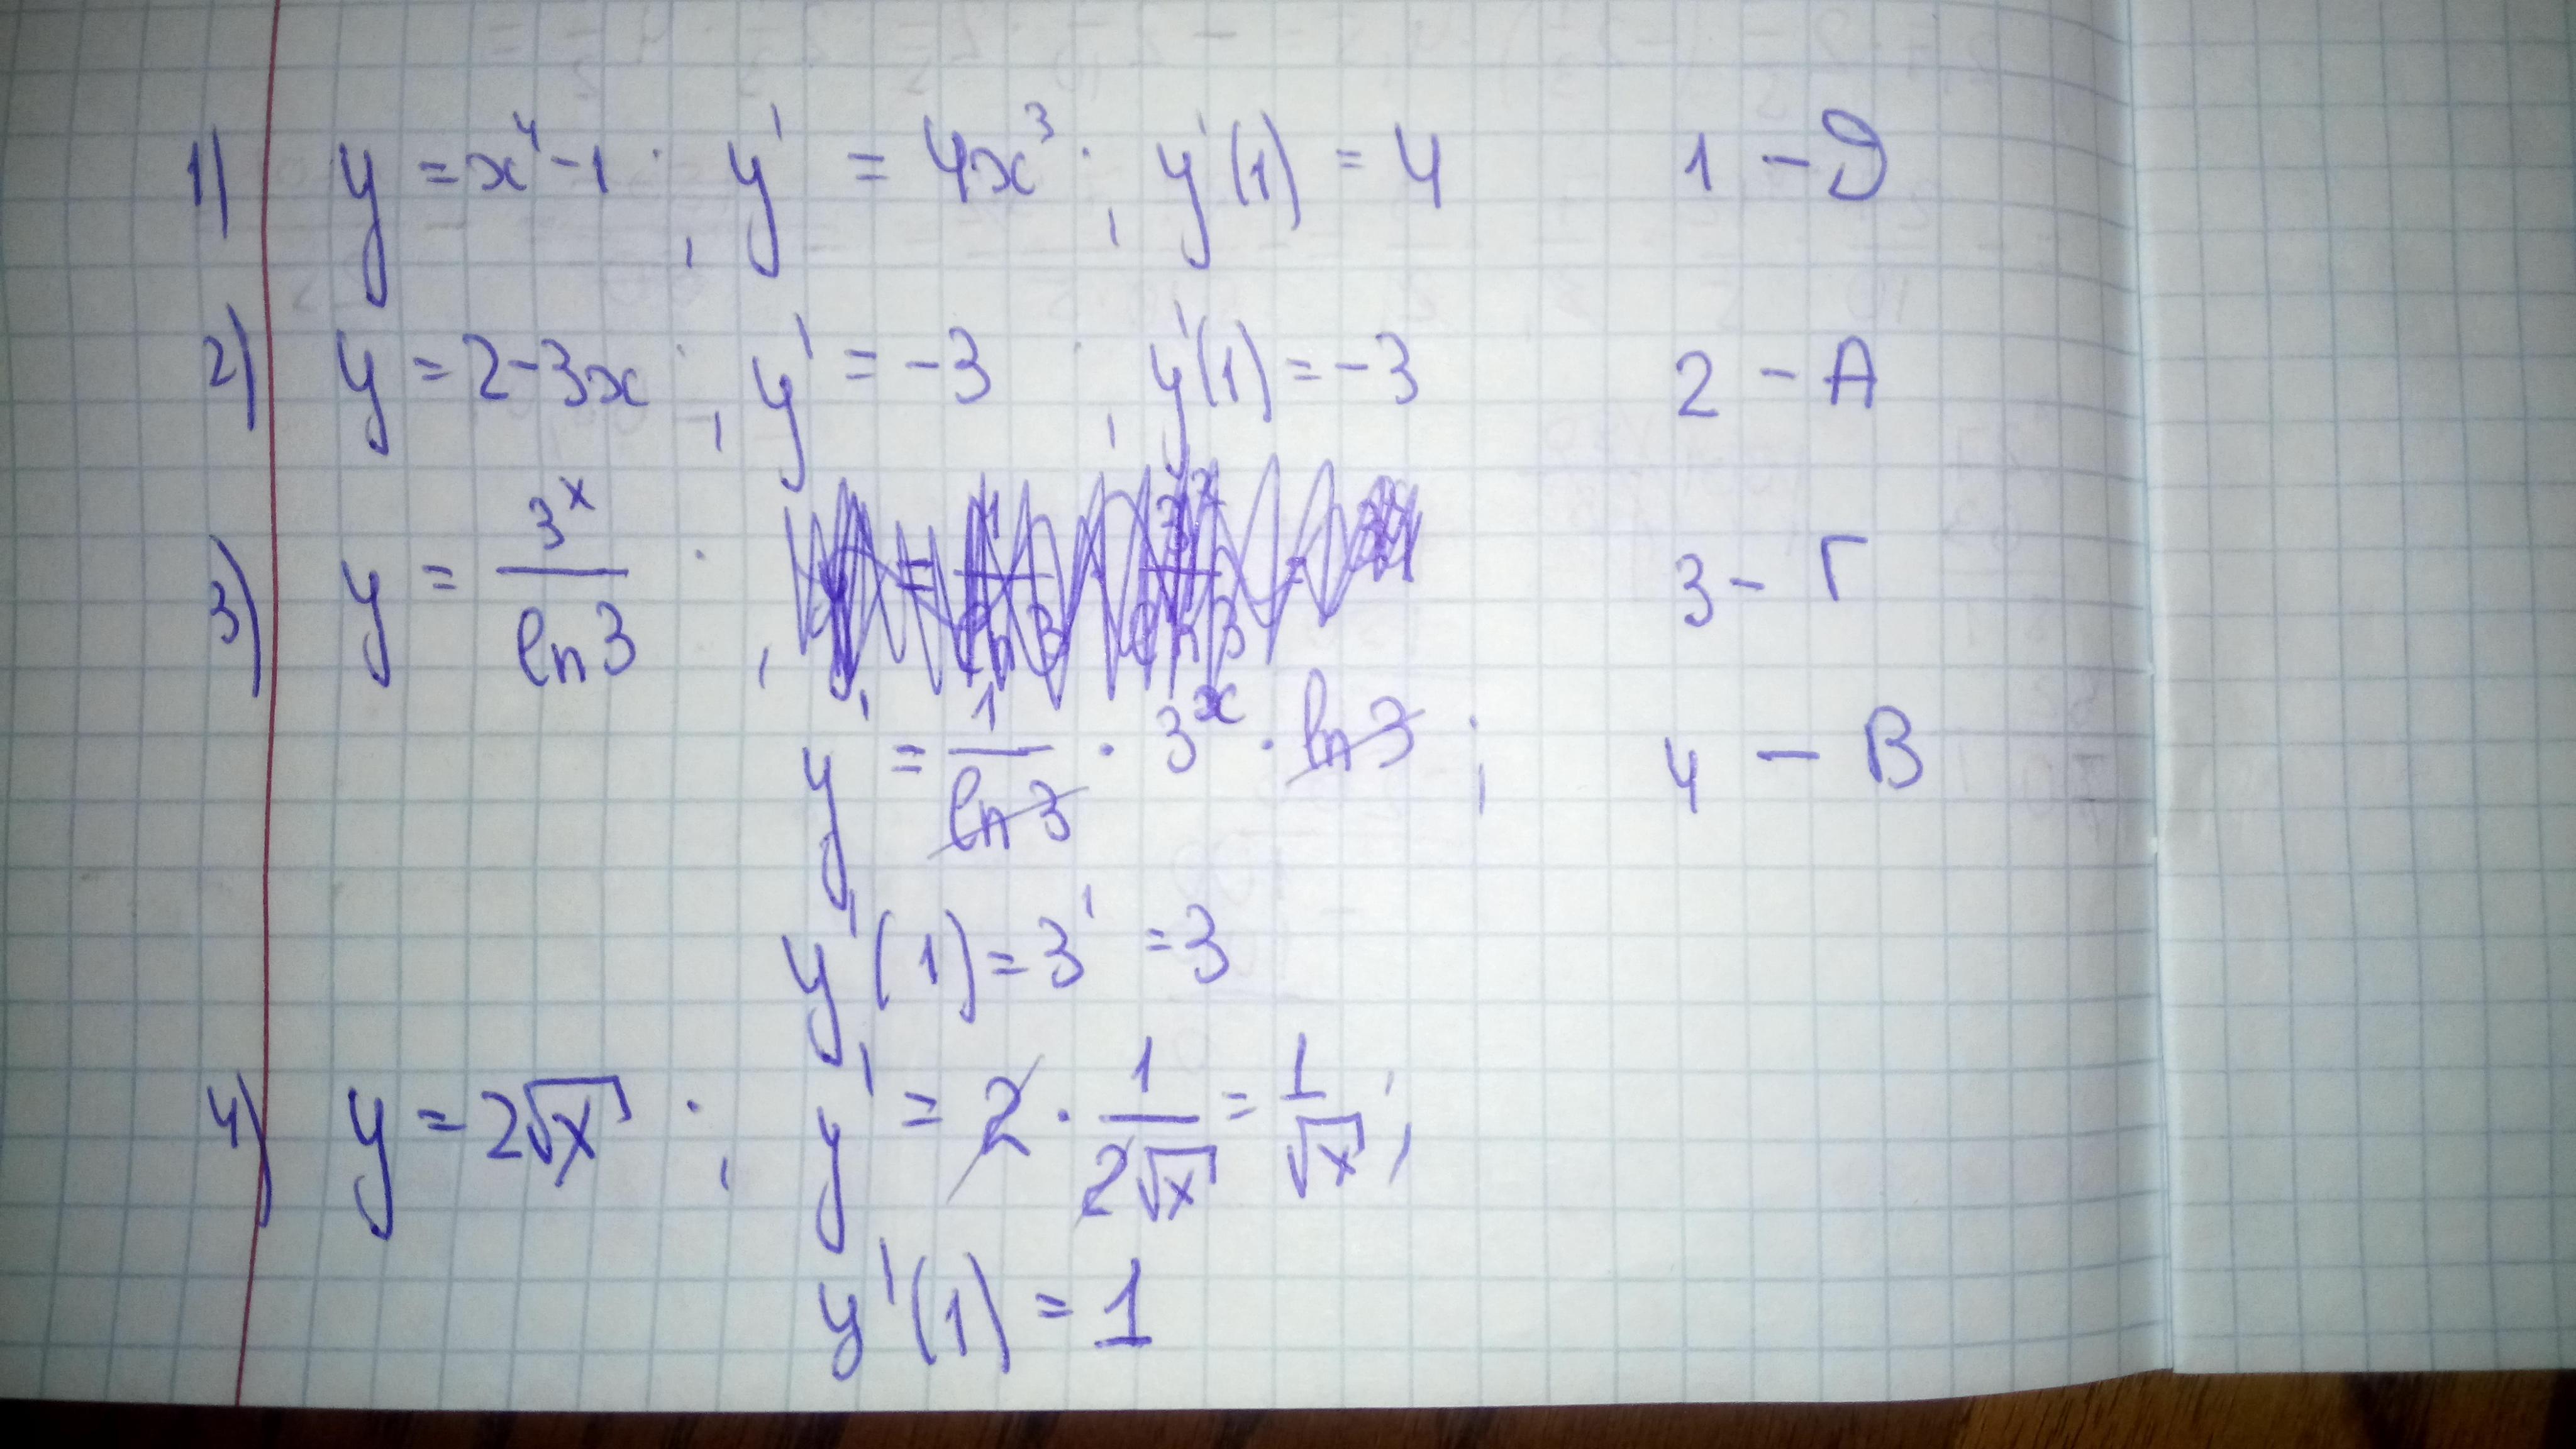 1) y = x⁴ - 1 ; y' = 4x³ ; y'(1) = 4 1 - Д
2) y = 2 - 3x ; y' = -3 ; y'(1) = -3 2 - А
3) y = 3ˣ/ln3 ; 3 - Г
y' = 1/ln3 · 3ˣ · ln3 ; 4 - В
y'(1) = 3¹ = 3
4) y = 2√x ; y' = 2 · 1/2√x = 1/√x ;
y'(1) = 1